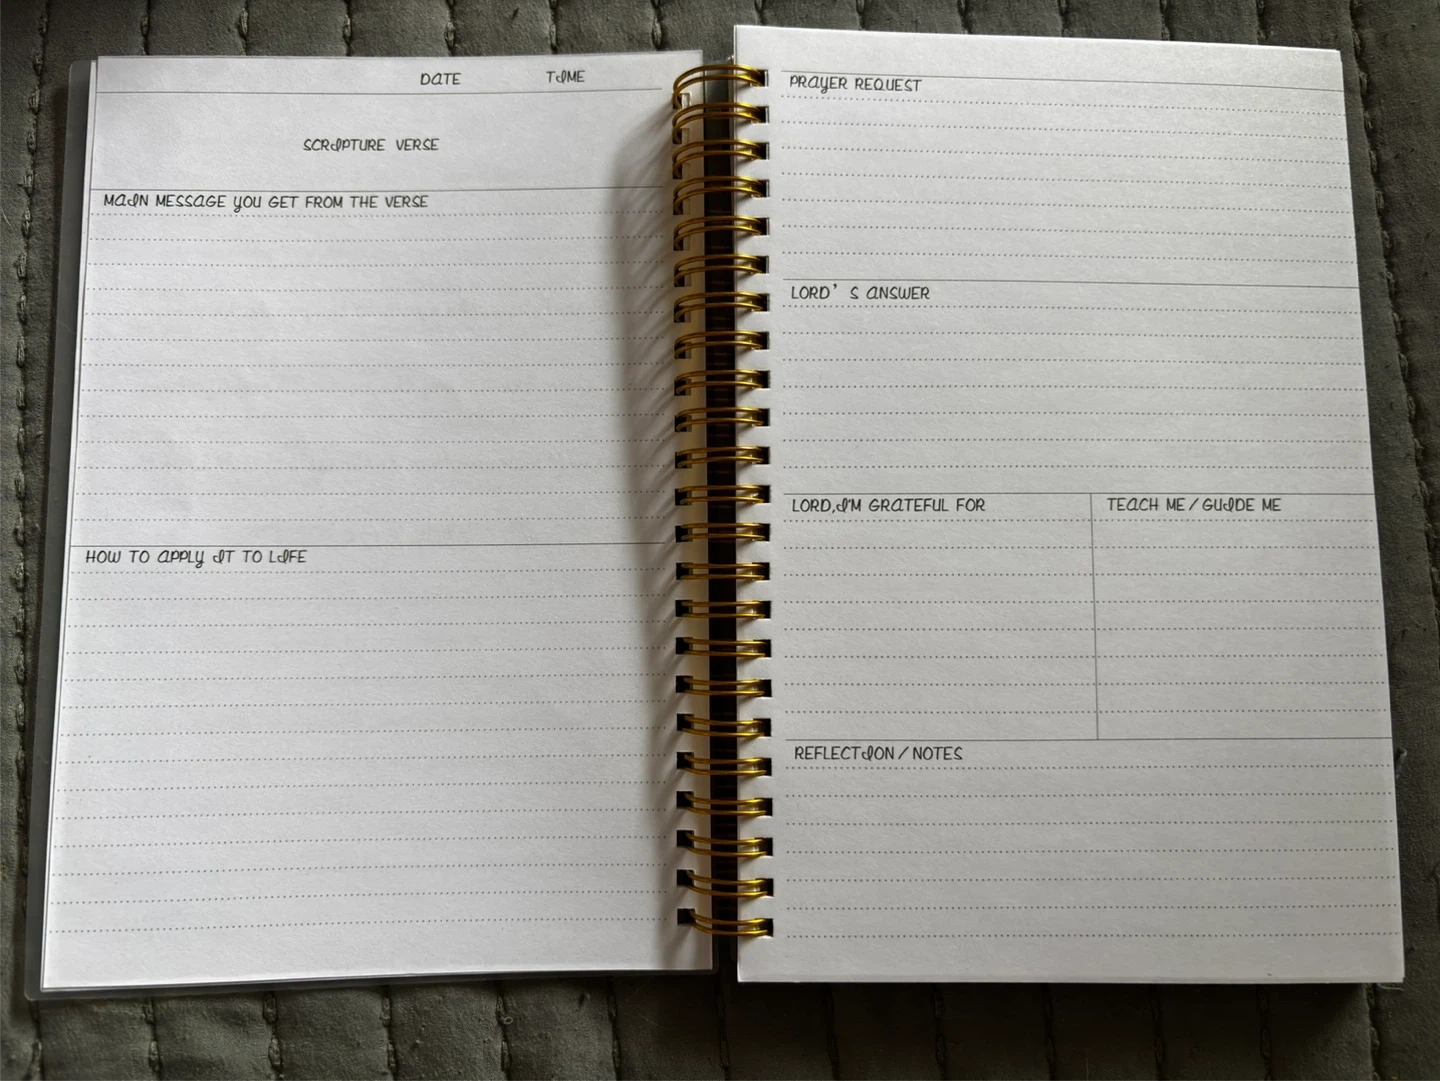 DATE TIME
SCRIPTURE VERSE
MAIN MESSAGE YOU GET FROM THE VERSE
HOW TO APPLY IT TO LIFE
PRAYER REQUEST
LORD’ S ANSWER
LORD,I'M GRATEFUL FOR
TEACH ME/GUIDE ME
REFLECTION/NOTES